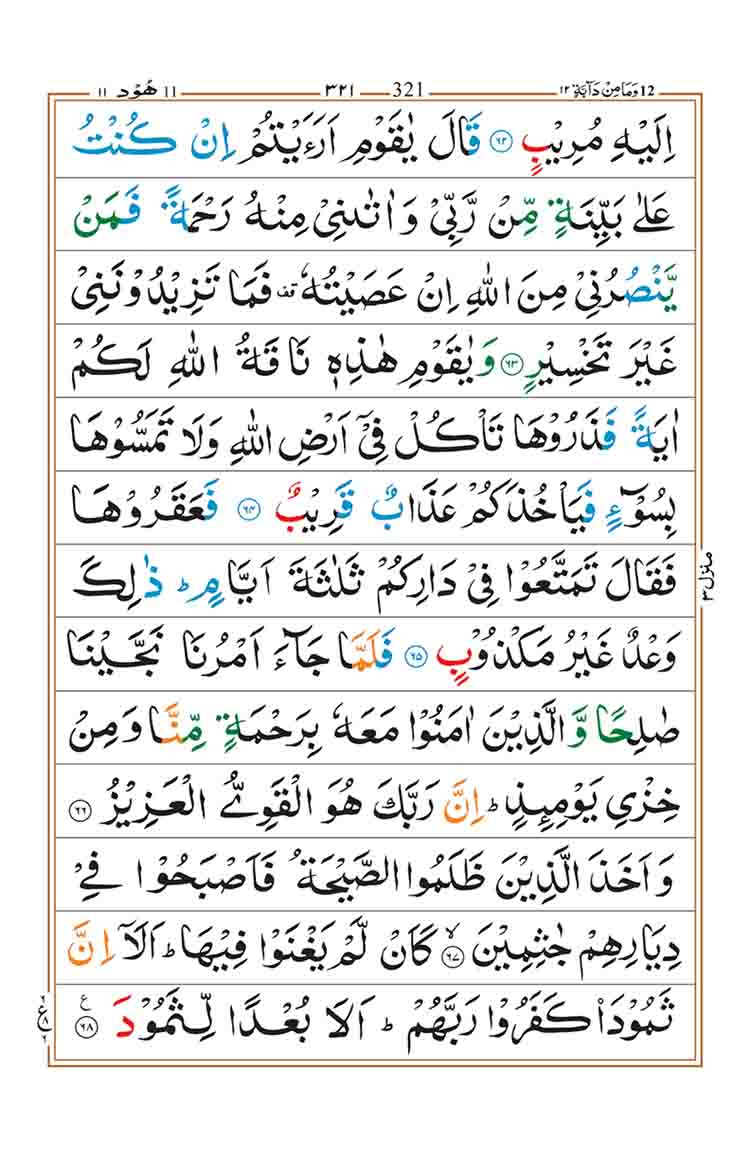 12 وَمَا مِنْ دَآبَّةٍ ١٢ 321 ٣٢١ 11 هُوْد ١١
اِلَيْهِ مُرِيْبٍ ﴿٦٢﴾ قَالَ يٰقَوْمِ اَرَءَيْتُمْ اِنْ كُنْتُ
عَلٰى بَيِّنَةٍ مِّنْ رَّبِّيْ وَاٰتٰىنِيْ مِنْهُ رَحْمَةً فَمَنْ
يَّنْصُرُنِيْ مِنَ اللّٰهِ اِنْ عَصَيْتُهٗ ۫ فَمَا تَزِيْدُوْنَنِيْ
غَيْرَ تَخْسِيْرٍ ﴿٦٣﴾ وَيٰقَوْمِ هٰذِهٖ نَاقَةُ اللّٰهِ لَكُمْ
اٰيَةً فَذَرُوْهَا تَاْكُلْ فِيْۤ اَرْضِ اللّٰهِ وَلَا تَمَسُّوْهَا
بِسُوْٓءٍ فَيَاْخُذَكُمْ عَذَابٌ قَرِيْبٌ ﴿٦٤﴾ فَعَقَرُوْهَا
فَقَالَ تَمَتَّعُوْا فِيْ دَارِكُمْ ثَلٰثَةَ اَيَّامٍ ؕ ذٰلِكَ
وَعْدٌ غَيْرُ مَكْذُوْبٍ ﴿٦٥﴾ فَلَمَّا جَآءَ اَمْرُنَا نَجَّيْنَا
صٰلِحًا وَّالَّذِيْنَ اٰمَنُوْا مَعَهٗ بِرَحْمَةٍ مِّنَّا وَمِنْ
خِزْيِ يَوْمِئِذٍ ؕ اِنَّ رَبَّكَ هُوَ الْقَوِيُّ الْعَزِيْزُ ﴿٦٦﴾
وَاَخَذَ الَّذِيْنَ ظَلَمُوا الصَّيْحَةُ فَاَصْبَحُوْا فِيْ
دِيَارِهِمْ جٰثِمِيْنَ ۙ ﴿٦٧﴾ كَاَنْ لَّمْ يَغْنَوْا فِيْهَا ؕ اَلَاۤ اِنَّ
ثَمُوْدَا۟ كَفَرُوْا رَبَّهُمْ ؕ اَلَا بُعْدًا لِّثَمُوْدَ ﴿٦٨﴾ ع
منزل ٣
ع ٨